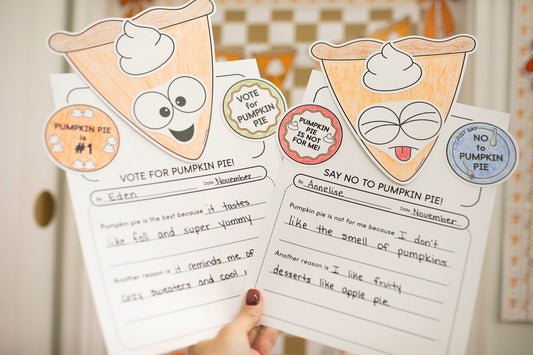 PUMPKIN PIE
is
#1
VOTE
for
PUMPKIN
PIE
VOTE FOR PUMPKIN PIE!
By: Eden Date: November
Pumpkin pie is the best because it tastes
like fall and super yummy
Another reason is it reminds me of
cozy sweaters and cool
PUMPKIN
PIE is
NOT FOR
ME!
JUST SAY
NO
to
PUMPKIN
PIE
SAY NO TO PUMPKIN PIE!
By: Annelise Date: November
Pumpkin pie is not for me because I don't
like the smell of pumpkins.
Another reason is I like fruity
desserts like apple pie.